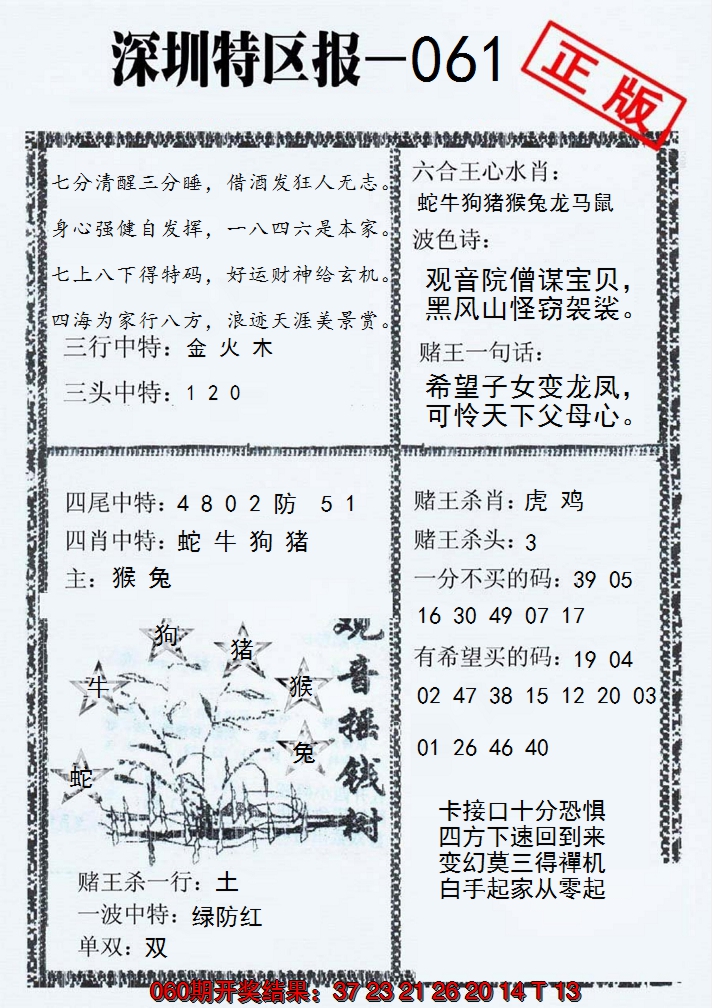 深圳特区报—061
正版
七分清醒三分睡，借酒发狂人无志。
身心强健自发挥，一八四六是本家。
七上八下得特码，好运财神给玄机。
四海为家行八方，浪迹天涯美景赏。
三行中特：金 火 木
三头中特：1 2 0
六合王心水肖：
蛇牛狗猪猴兔龙马鼠
波色诗：
观音院僧谋宝贝，
黑风山怪窃袈裟。
赌王一句话：
希望子女变龙凤，
可怜天下父母心。
四尾中特：4 8 0 2 防 5 1
四肖中特：蛇 牛 狗 猪
主：猴 兔
观音摇钱树
狗
猪
牛
猴
兔
蛇
赌王杀一行：土
一波中特：绿防红
单双：双
赌王杀肖：虎 鸡
赌王杀头：3
一分不买的码：39 05
16 30 49 07 17
有希望买的码：19 04
02 47 38 15 12 20 03
01 26 46 40
卡接口十分恐惧
四方下速回到来
变幻莫三得禪机
白手起家从零起
060期开奖结果：37 23 21 26 20 14 T 13